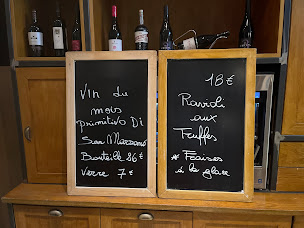 Vin du
mois
primitivo Di
San Marzano
Bouteille 26€
Verre 7€
18€
Ravioli
aux
Truffes
* Fraises
à la glace